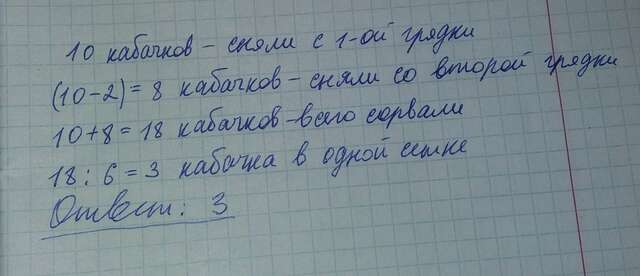 10 кабачков - сняли с 1-ой грядки
(10-2) = 8 кабачков - сняли со второй грядки
10+8 = 18 кабачков - всего сорвали
18 : 6 = 3 кабачка в одной сетке
Ответ: 3